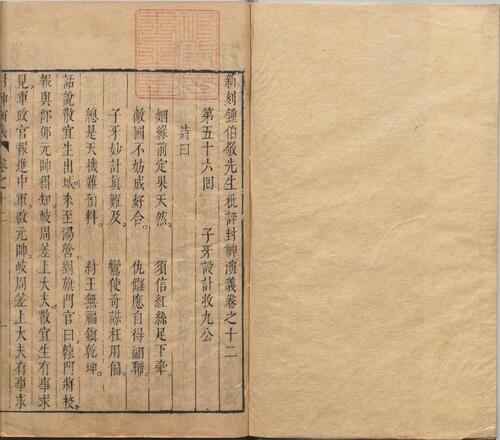 新刻鍾伯敬先生批評封神演義卷之十二
第五十六回　子牙設計收九公
詩曰
姻緣前定果天然。　須信紅絲足下牽。
敵國不妨成好合。　仇讎應自得翩聯。
子牙妙計真難及。　鸞使奇謀枉用偏。
總是天機難預料。　紂王無福鎮乾坤。
話說散宜生出城。來至湯營。對旗門官曰。轅門將校。
報與你鄧元帥得知。岐周差上大夫散宜生有事求
見。軍政官報進中軍。啟元帥。岐周差上大夫有事求
封神演義　卷之十二